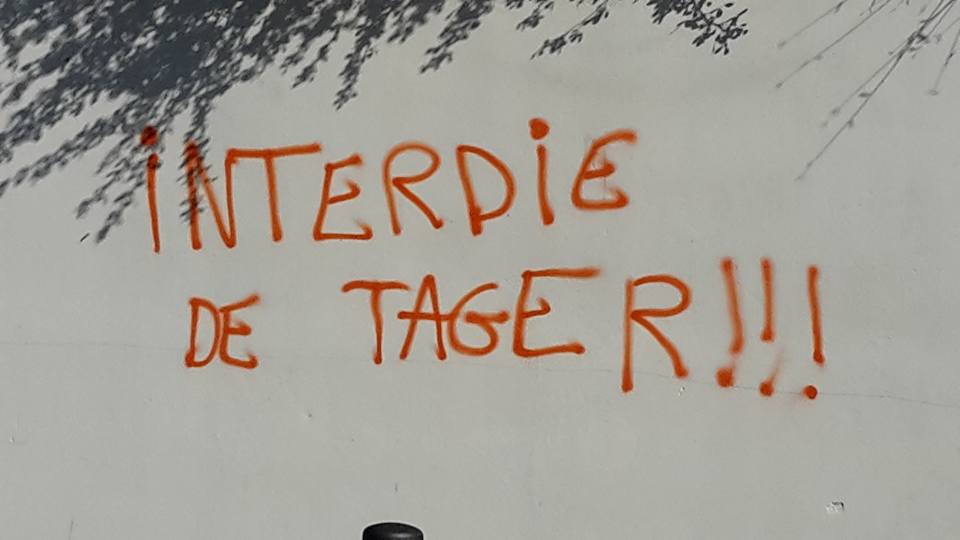 iNTERDiE
DE TAGER!!!